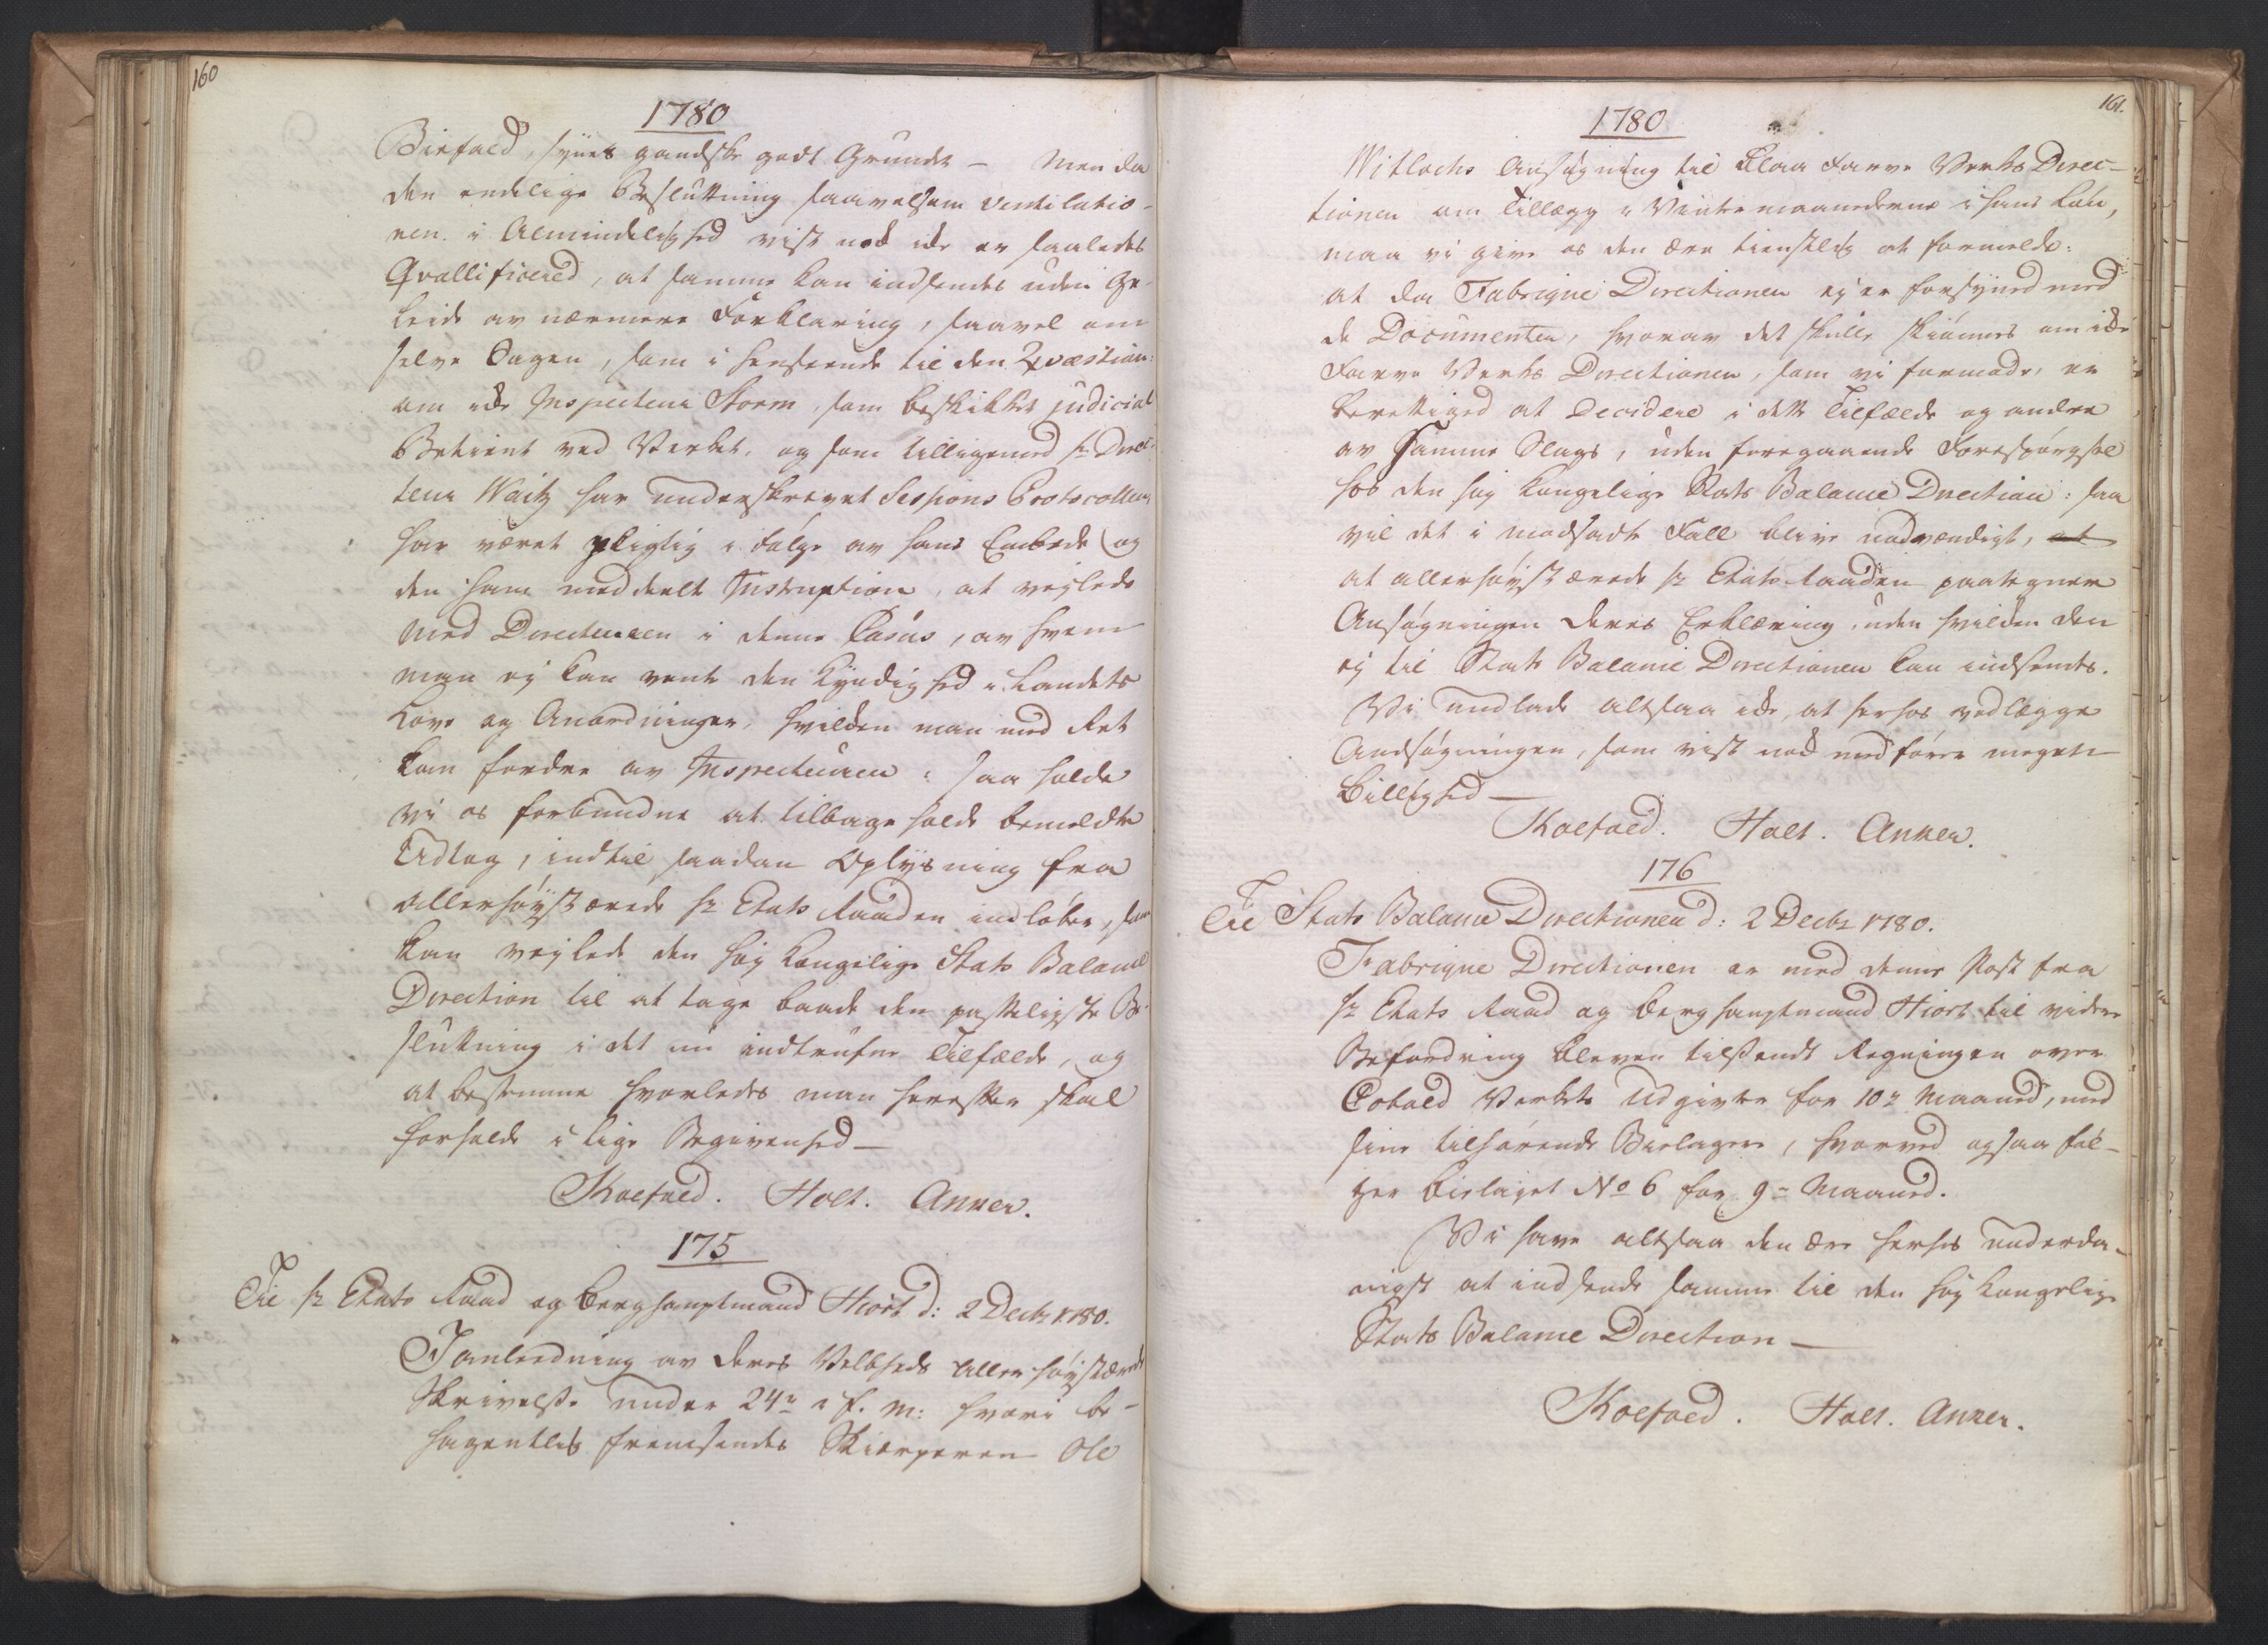 160
1780
Biefald, synes gandske godt Grundet – Men da
den endelige Besluttning saavelsom Ventilatio-
nen i Almindelighed vist nok ikke er saaledes
Qvallificered, at samme kan indsendes uden Ge-
leide av nærmere Forklaring, saavel om
selve Sagen, som i henseende til den Qvæstion:
om ikke Inspecteur Storm, som beskikket judicial
Betient ved Verket, og som tilligemed Hr Direc-
teur Waitz har underskrevet Sessions Protocollen
har været pligtig i Følge av hans Embede og
den ham meddeelt Instruxtion, at vejlede
med Directeuren i denne Casus, av hvem
man ej kan vente den Kyndighed i Landets
Love og Anordninger, hvilken man med Ret
kan fordre av Inspecteuren: saa holde
vi os forbundne at tilbageholde bemeldte
Udtog, indtil saadan Oplysning fra
allerhøystærede Hr Etats Raaden indløber, som
kan vejlede den høy Kongelige Stats Balance
Direction til at tage baade den passeligste Be-
sluttning i det nu indtrufne Tilfælde, og
at bestemme hvorledes man herefter skal
forholde i lige Begivenhed –
Koefoed. Holt. Anker.
175
Til Hr Etats Raad og Berghauptmand Hiort d: 2 Decbr 1780.
I anledning av Deres Velbheds allerhøystærede
Skrivelse under 24de i f. M: hvori be-
hagentlig fremsendes Skierperen Ole
161.
1780
Witlochs Ansøgning til Blaa Farve Verks Direc-
tionen om Tillægg i Vintermaanederne i hans Løn,
maa vi give os den Ære tienstlig at formelde:
at da Fabrique Directionen ej er forsyned med
de Documenter, hvorav det skulle skiønnes om ikke
Farve Verks Directionen, som vi formode, er
berettiged at Decidere i dette Tilfælde og andre
av samme Slags, uden foregaaende Forespørgsel
hos den høy Kongelige Stats Balance Direction: saa
vil det i modsadt Fall blive nødvændigt, at
at allerhøyst ærede Hr Etats Raaden paategner
Ansøgningen Deres Erklæring, uden hvilken den
ej til Stats Balance Directionen kan indsendes.
Vi undlade altsaa ikke, at herhos vedlægge
Andsøgningen, som vist nok medfører megen
Billighed –
Koefoed. Holt. Anker.
176
Til Stats Balance Directionen d: 2 Decbr 1780.
Fabrique Directionen er med denne Post fra
Hr Etats Raad og Berghauptmand Hiort til videre
Befordring bleven tilsendt Regningen over
Cobold Verkets Udgivter for 10de Maaned, med
sine tilhørende Bielager, hvorved ogsaa føl-
ger Bielaget No 6 for 9de Maaned.
Vi have altsaa den Ære herhos underda-
nigst at indsende samme til den høy Kongelige
Stats Balance Direction –
Koefoed. Holt. Anker.